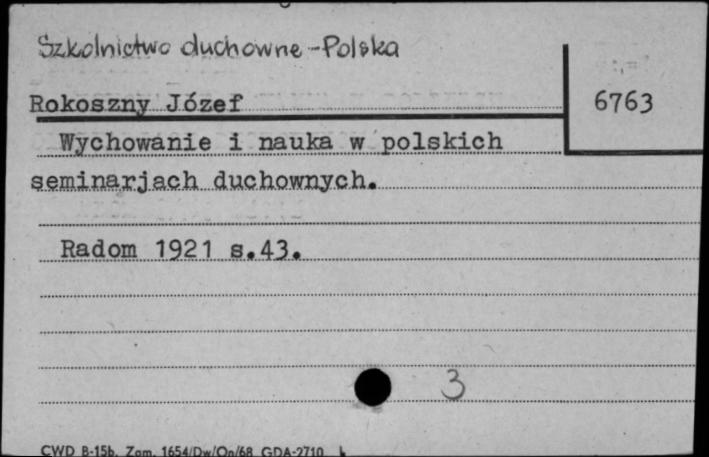 Szkolnictwo duchowne - Polska
Rokoszny Józef
6763
Wychowanie i nauka w polskich
seminarjach duchownych.
Radom 1921 s.43.
3
CWD B-15b. Zam. 1654/Dw/On/68 GDA-2710